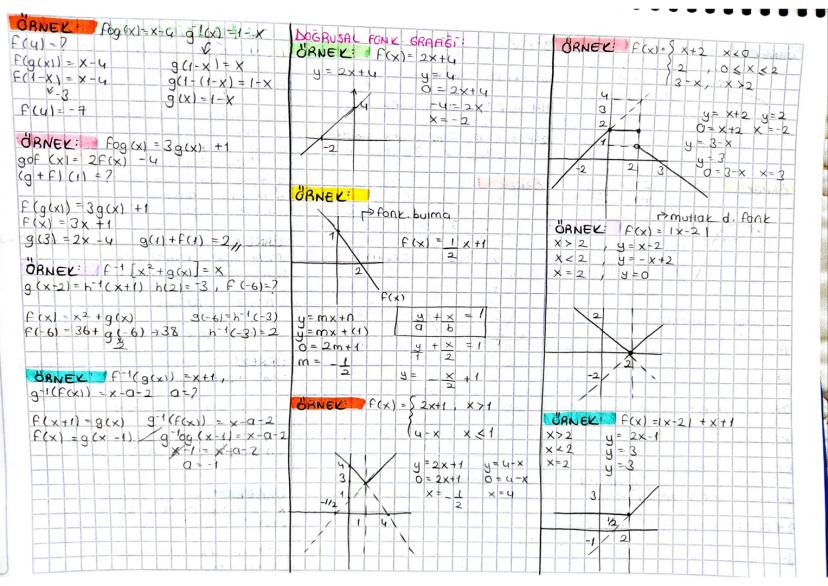 ÖRNEK: fog(x)=x-4 g⁻¹(x)=1-x
f(4)=?
f(g(x))=x-4 g(1-x)=x
f(1-x)=x-4 g(1-(1-x)=1-x
-3 g(x)=1-x
f(4)=-7
ÖRNEK: fog(x)=3g(x)+1
gof(x)=2f(x)-4
(g+f)(1)=?
f(g(x))=3g(x)+1
f(x)=3x+1
g(3)=2x-4 g(1)+f(1)=2//
ÖRNEK: f⁻¹[x²+g(x)]=x
g(x-2)=h⁻¹(x+1) h(2)=-3, f(-6)=?
f(x)=x²+g(x) g(-6)=h⁻¹(-3)
f(-6)=36+g(-6)→38 h⁻¹(-3)=2
2
ÖRNEK: f⁻¹(g(x))=x+1,
g⁻¹(f(x))=x-a-2 a=?
f(x+1)=g(x) g⁻¹(f(x))=x-a-2
f(x)=g(x-1) g⁻¹og(x-1)=x-a-2
x-1=x-a-2
a=-1
DOĞRUSAL FONK GRAFİĞİ:
ÖRNEK: f(x)=2x+4
y=2x+4 y=4
0=2x+4
-4=2x
x=-2
4
-2
ÖRNEK:
→fonk. bulma
1
f(x)=1/2 x+1
2
f(x)
y=mx+n y/a + x/b = 1
y=mx+(1) y/1 + x/2 = 1
0=2m+1
m=-1/2 y=-x/2+1
ÖRNEK: f(x)={2x+1, x>1
4-x x≤1
4 y=2x+1 y=4-x
3 0=2x+1 0=4-x
1 x=-1/2 x=4
-1/2
1 4
ÖRNEK: f(x)={x+2 x<0
2, 0≤x≤2
3-x, x>2
4
3 y=x+2 y=2
2 0=x+2 x=-2
1 y=3-x
y=3
-2 2 3 0=3-x x=3
→mutlak d. fonk
ÖRNEK: f(x)=|x-2|
x>2, y=x-2
x<2, y=-x+2
x=2, y=0
2
2
-2
ÖRNEK: f(x)=|x-2|+x+1
x>2 y=2x-1
x<2 y=3
x=2 y=3
3
1/2
-1 2